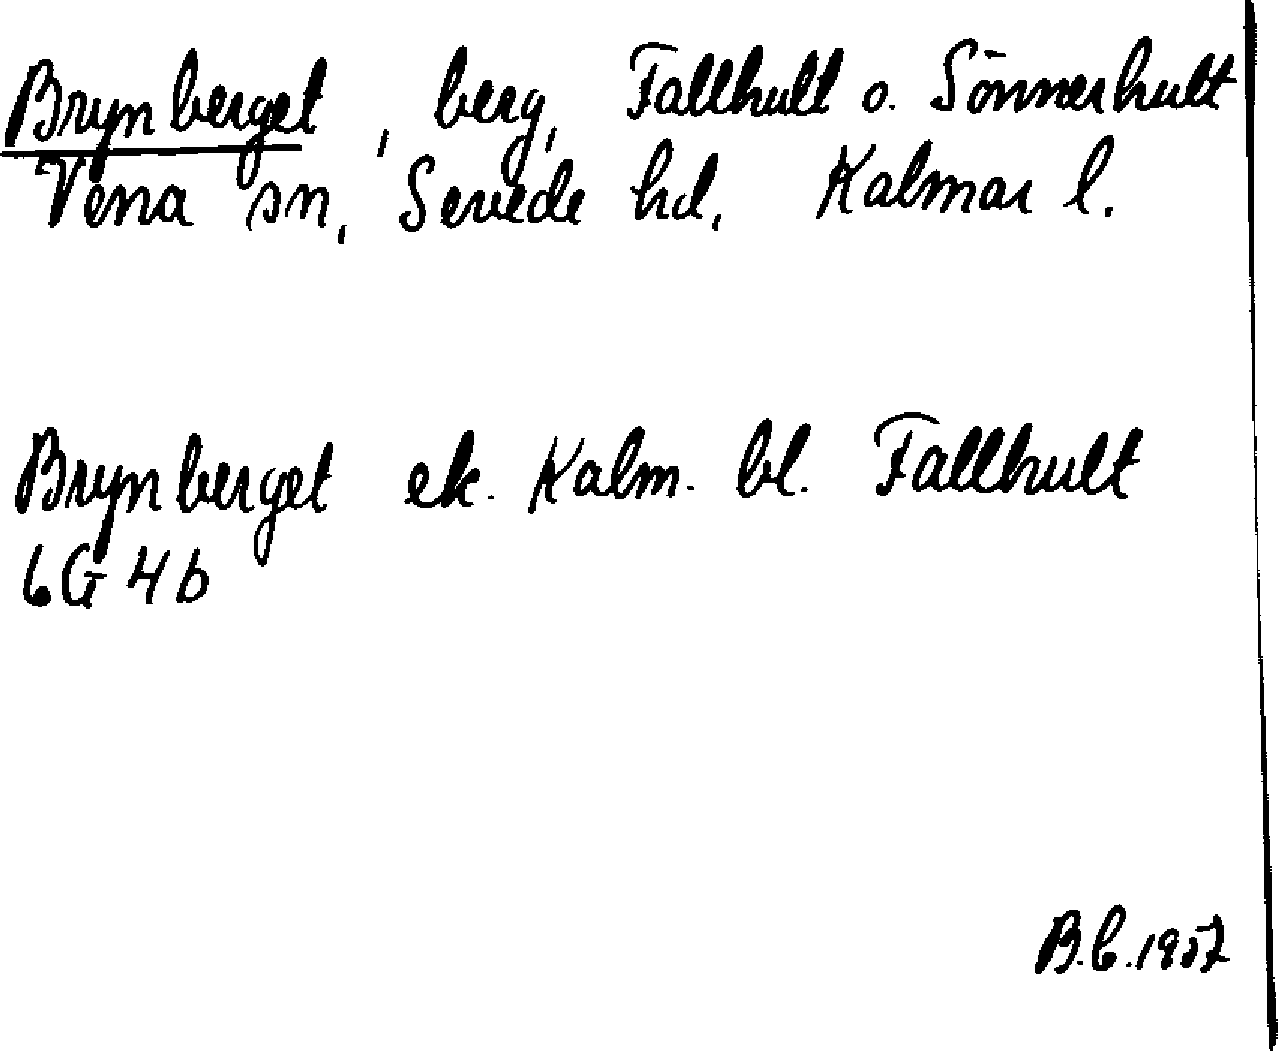 Brynberget, berg, Fallhult o. Sönnerhult
Vena sn, Sevede hd, Kalmar l.
Brynberget ek. Kalm. bl. Fallhult
6G 4b
B.b.1957